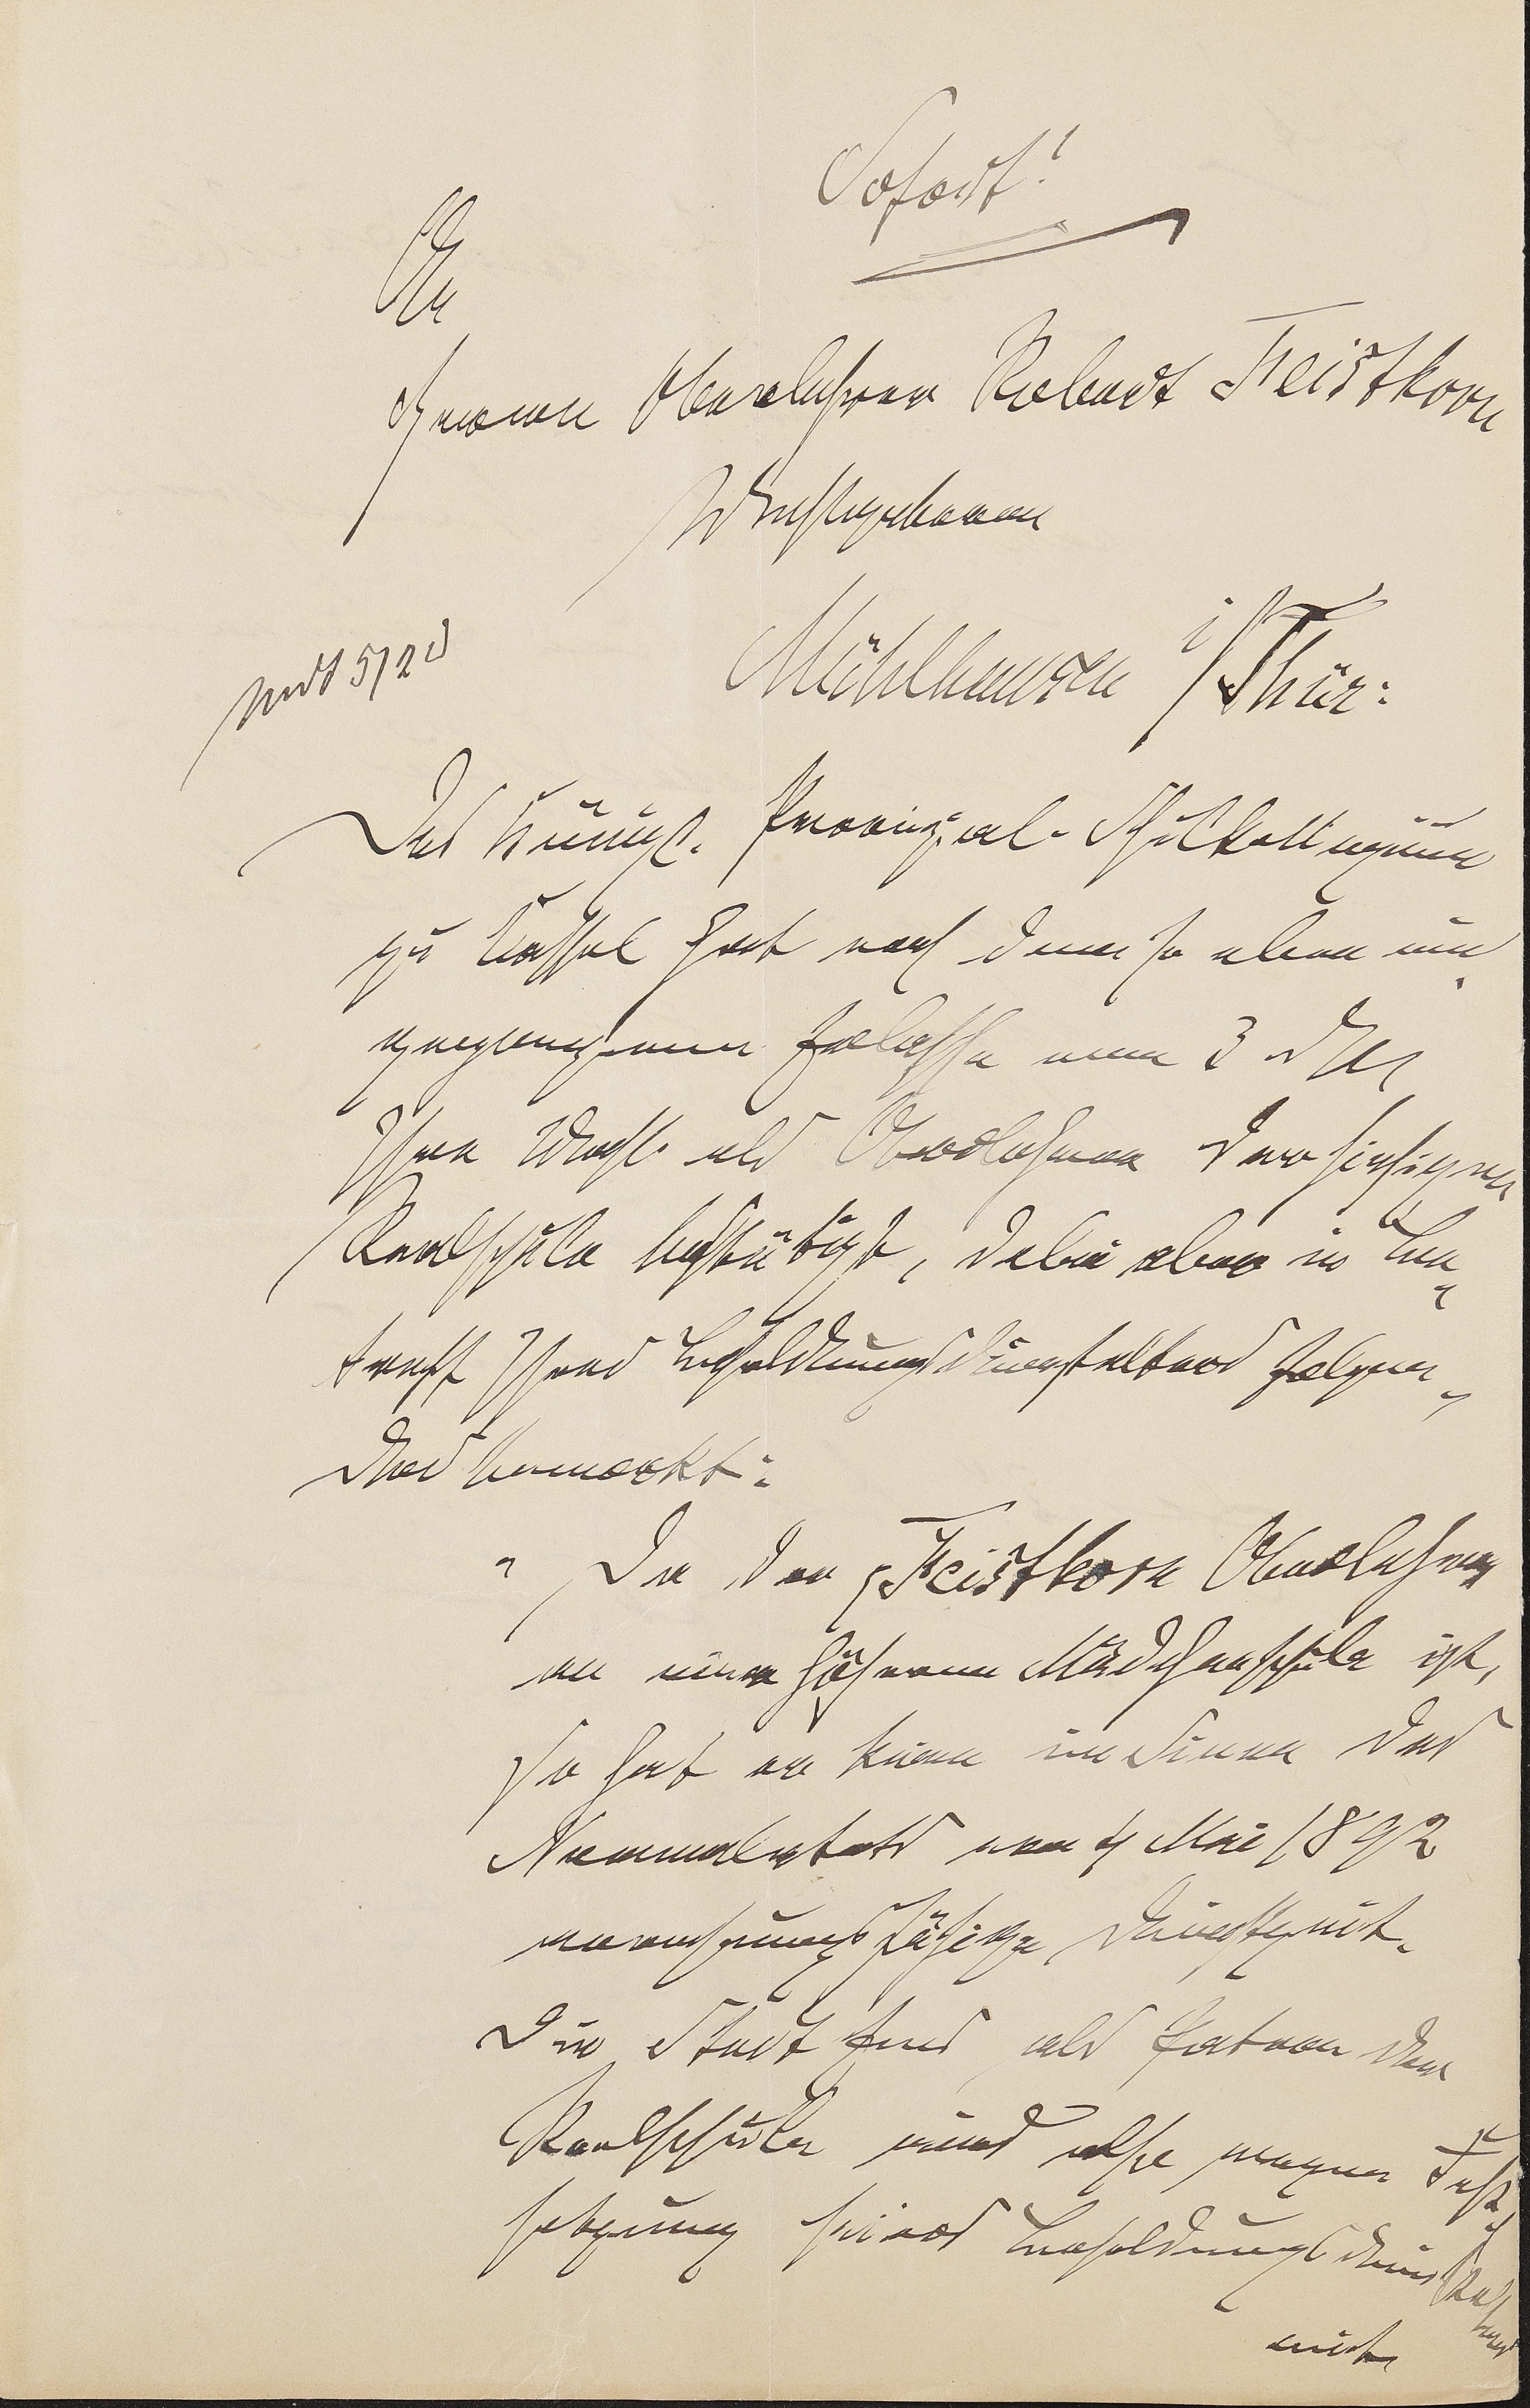 Sofort!
An
Herrn Oberlehrer Robert Feistkorn
Wohlgeboren
Mühlhausen i/Thür:
Das Königl. Provinzial-Schulkollegium
zu Cassel hat nach dem so eben ein-
gegangenen Erlasse vom 3 d Mts
Ihre Wahl als Oberlehrer der hiesigen
Realschule bestätigt, dabei aber in Be-
treff Ihres Besoldungsdienstalters Folgen-
des bemerkt:
" Da der p Feistkorn Oberlehrer
an einer höheren Mädchenschule ist,
so hat er keine im Sinne des
Normaletats vom 4 Mai 1892
anrechnungsfähige Dienstzeit.
Die Stadt als Patron der
Realschule wird also wegen Fest-
setzung seines Besoldungsdienstalters
mit